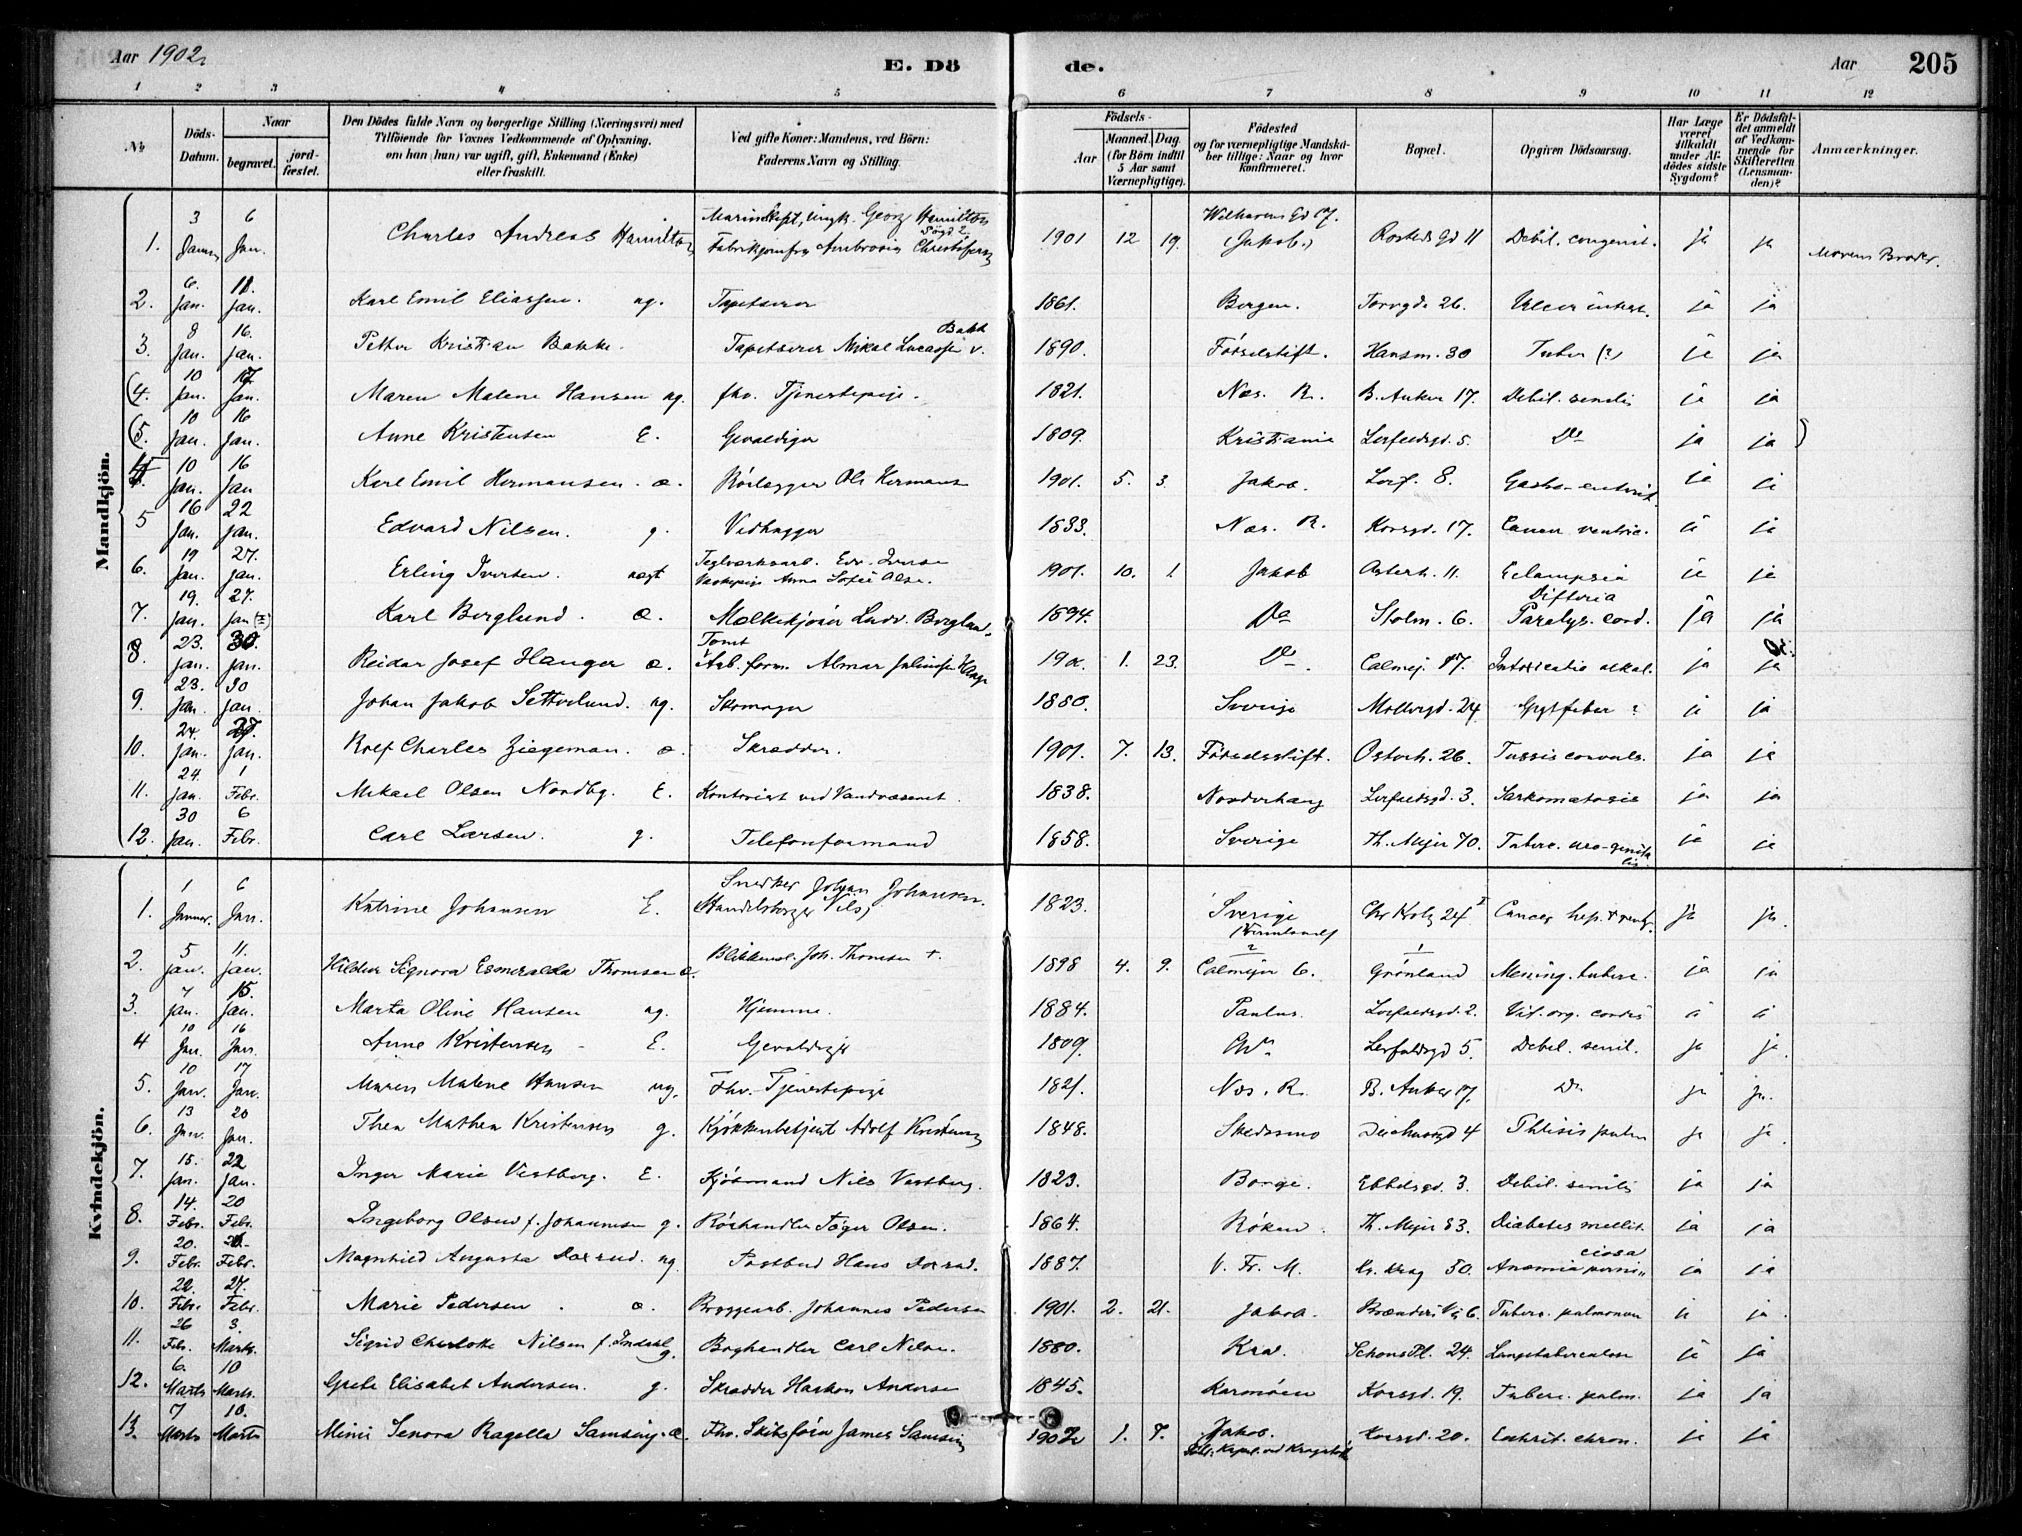 Aar 1902
E. Dö
de.
Aar
205
1 2 3 4 5 6 7 8 9 10 11 12
№
Döds-
Datum.
Naar
begravet.
jord-
fæstet.
Den Dödes fulde Navn og borgerlige Stilling (Næringsvei) med
Tilföiende for Voxnes Vedkommende af Oplysning,
om han (hun) var ugift, gift, Enkemand (Enke)
eller fraskilt.
Ved gifte Koner: Mandens, ved Börn:
Faderens Navn og Stilling.
Födsels-
Aar
Maaned. Dag.
(for Börn indtil
5 Aar samt
Værnepligtige).
Födested
og for værnepligtige Mandska-
ber tillige: Naar og hvor
konfirmeret.
Bopæl.
Opgiven Dödsaarsag.
Har Læge
været
tilkaldt
under Af-
dödes sidste
Sygdom?
Er Dödsfal-
det anmeldt
af Vedkom-
mende for
Skifteretten
(Lensman-
den)?
Anmærkninger.
Mandkjön.
1. 3 Januar 6 Jan. Charles Andreas Hamilton Georg Hamilton Fabrikjomfru Ambrosia 1901 12 19. (Jakob.) Rostedsgd 11 Debil. congenit. ja ja Morens Broder.
2. 6. Jan. 11. Jan. Karl Emil Eliassen. ug. Tapetserer 1861. Bergen. Torvgd. 26. ja ja
3. 8 Jan. 16. Jan. Petter Kristian Bakke. Tapetserer Mikal 1890. Födselsstift. Hausm. 30 Tuber (?) ja ja
(4. 10 Jan. 17 Jan. Maren Malene Hansen ug. fhv. Tjenestepige. 1821. Næs. R. B. Anker 17. Debil. senilis ja ja
(5. 10 Jan. 16 Jan. Anne Kristensen E. Gevaldiger 1809. Kristiania Lerfaldsgd. 5. Do ja ja )
4. 10 Jan. 16 Jan Karl Emil Hermansen. æ. Rörlægger Ole Hermans 1901. 5. 3. Jakob. Lerf. 8. Gastro-enterit. ja ja
5 16 Jan. 22 Jan. Edvard Nilsen. g. Vedhugger 1833. Næs. R. Korsgd. 17. Cancer ventric. ja ja
6. 19 Jan. 27. Jan. Erling Iversen. uægt Teglværksarb. Edv. Iversen Anna Sofie Olse. 1901. 10. 1. Jakob Osterh. 11. Eclampsia ja ja
7. 19. Jan. 27. Jan Karl Berglund. æ. Melkekjører Ludv. Berglun. 1894. Do Stolm. 6. Difteria Paralys. cord. ja ja
8 23. Jan. 30. Jan. Reidar Josef Hauger æ. Tomt Arb. form. Almar 190 1. 23. Do Calmej. 17. Intoxicatio alkal. ja ja
9. 23. Jan. 30 Jan. Johan Jakob Setterlund. ug. Skomager 1880. Sverige Mollergd. 24 Gigtfeber ? ja ja
10. 24. Jan. Jan. Rolf Charles Ziegeman. æ. Skrædder. 1901. 7. 13. Födselsstift. Osterh. 26. Tussis convuls. ja ja
11. 24. Jan. 1 Febr. Mikael Olsen Nordby. E. Kontorist ved Vandvæsenet. 1838. Norderhaug Lerfaldsgd. 3. Sarkomatosis ja ja
12. 30 Jan. 6 Febr. Carl Larsen. g. Telefonformand 1858. Sverige Th. Mejer 70. Tuberc. uro-genita lis ja ja
Kvindekjön.
1. 1 Januar. 6 Jan. Katrine Johansen E. Snedker Johan Johansen. (Handelsborger Nils) 1823. Sverige (Vermland) Chr Krohg 24 Cancer hep. + ventr. ja ja
2. 5 Jan. 11. Jan. Hildur Signora Esmeralda Thomsen æ. Blikkensl. Joh. Thomsen +. 1898 4. 9. Calmejer 6. Grønland Mening. tuberc. ja ja
3. 7 Jan. 15. Jan. Marta Oline Hansen ug. Hjemme. 1884. Paulus. Lerfaldsgd. 2. Vit. org. cordis ja ja
4 10 Jan. 16 Jan. Anne Kristensen E. Gevaldiger 1809. Chra Lerfaldsgd 5. Debil. senil. ja ja.
5. 10 Janr. 17 Janr. Maren Malene Hansen ug. Fhv. Tjenestepige 1821. Næs. R. B. Anker 17. Do ja ja.
6. 13 Jan. 20 Jan. Thea Mathea Kristensen g. Kjökkenbetjent Adolf Kristensen 1848. Skedsmo Deichmsgd 4 Phtisis pulm ja ja
7. 15. Jan. 22 Jan. Inger Marie Vestberg. E. Kjöbmand Nils Vestberg. 1823. Borge. Ebbelsgd. 3. Debil. senilis ja ja
8. 14. Febr. 20 Febr. Ingeborg Olsen f. Johannesen g. Rörhandler Töger Olsen. 1864. Röken. Th. Mejer 83. Diabetes mellit. ja ja
9. 20. Febr. Febr. Magnhild Augusta Dørrud. ug. Postbud Hans Dørrud. 1887. V. Fr. M. Kr. Krog 50. Anæmia perni ciosa ja ja
10. 22. Febr. 27. Febr. Marie Pedersen. æ. Bryggearb. Johannes Pedersen 1901. 2. 21. Jakob. Brænderi V. 6. Tuberc. pulmonum ja ja.
11. 26 Feb. 3. Marts. Sigrid Charlotte Nilsen f. Indahl g. Boghandler Carl Nilse. 1880. Kra. Schous Pl. 24. Lungetuberculose ja ja
12. 6. Marts 10 Marts. Grete Elisabet Andersen. g. Skrædder Haakon Anderse 1845. Karmöen Korsgd. 19. Tuberc. pulm. ja ja
13. 7 Marts 10. Marts Minie Senora Ragella Samsing. æ. Fhv. Skibsförer James Samsing 1902 1. 7. Jakob. Korsgd. 20. Enterit. chron. ja ja